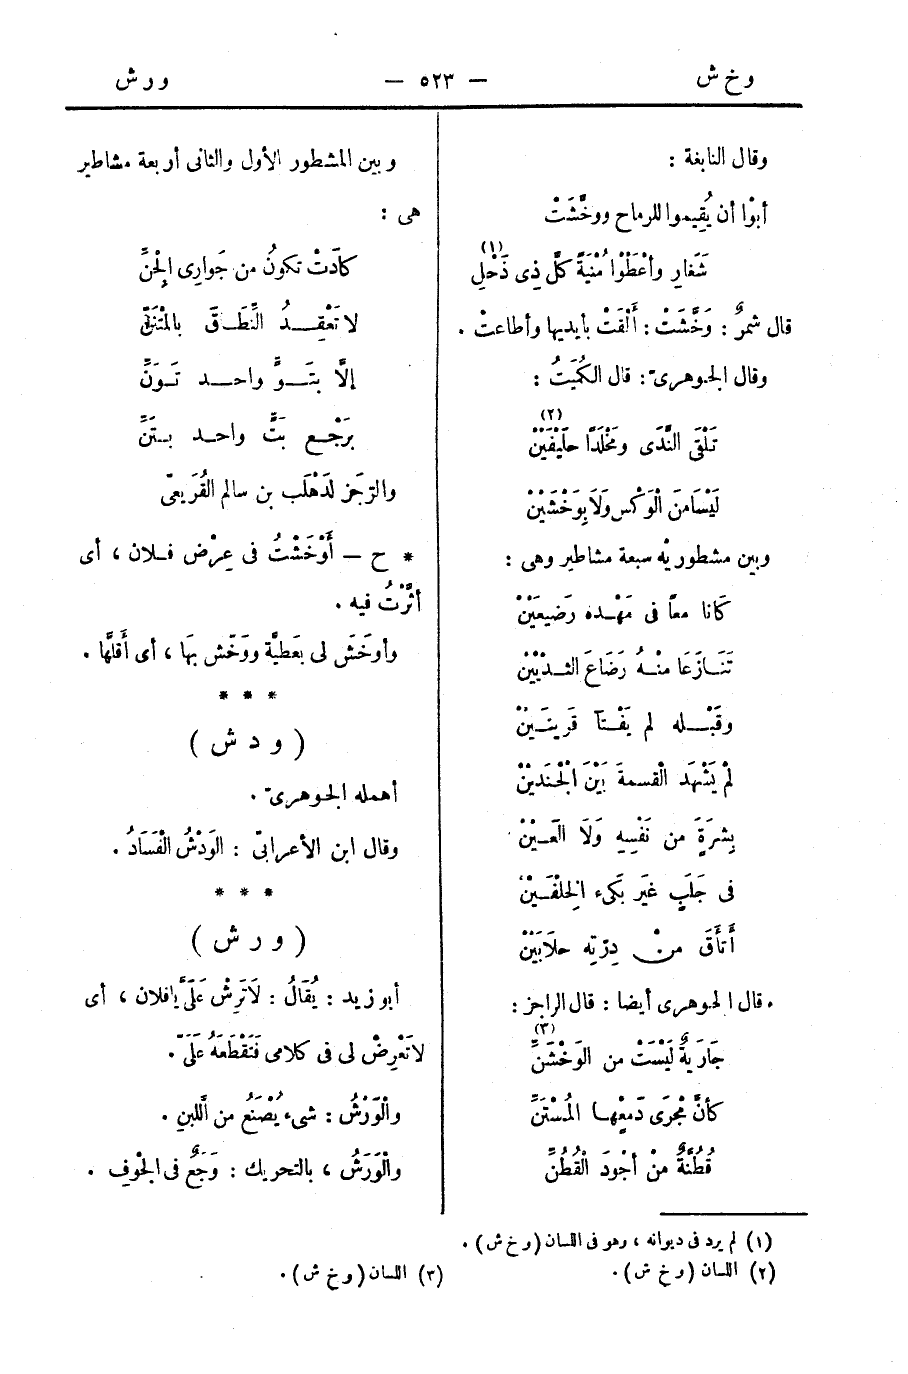 وخ ش — ٥٢٣ — ورش
وقال النابغة :
أبوْا أن يُقِيموا للرماح ووخَّشَتْ
شَغَارِ وأَعْطَوْا مُنْيَةً كلَّ ذِى ذَحْلِ (١)
قال شمرٌ : وَخَّشَتْ : أَلْقَتْ بأيديها وأطاعتْ .
وقال الجوهرىّ : قال الكُمَيْتُ :
تَلْقَى النَّدَى ومَخْلَدًا حَلِيفَيْنْ (٢)
لَيْسَا مِنَ الْوَكْسِ وَلاَ بِوَخْشَيْنْ
وبين مشطوريْه سبعة مشاطير وهى :
كَانَا معاً فى مَهْدِه رَضِيعَيْنْ
تَنَازَعَا مِنْهُ رَضَاعَ الثَّدْيَيْنْ
وقَبْلِه لم يَفْتآ قَرِينَيْنْ
لمْ يَشْهَدِ الْقِسمةَ بَيْنَ الْجُنْدَيْنْ
بِشَرَةٍ من نَفْسِهِ وَلَا الْعَيْنْ
فى حَلَبٍ غَيْرِ بَكىء الخِلْفَيْنْ
أَتْأَقَ مِنْ دِرّتِه حلابَيْنْ
قال الجوهرى أيضا : قال الراجز :
جَارِيَةٌ لَيْسَتْ من الوَخْشَنِّ (٣)
كأنَّ مَجْرَى دَمْعِها المُسْتَنِّ
قُطُنَّةٌ مِنْ أجْودِ الْقُطُنِّ
وبين المشطور الأول والثانى أربعة مشاطير
هى :
كادَتْ تكونُ من جَوارِى الْجِنِّ
لا تَعْقِدُ النِّطَاقَ بالمَتْنَيِّ
إلَّا بِتَوٍّ واحدٍ تَوَنِّ
بِرَجْعِ بَتٍّ واحد بتَنِّ
والرّجَز لدَهْلَب بن سالم القُرَيعىّ
* ح – أَوْخَشْتُ فى عِرْضِ فلان ، أى
أثَّرْتُ فيه .
وأوخَشَ لى بعَطِيَّةٍ ووَخّش بهَا ، أى أَقلَّها .
* * *
( و د ش )
أهمله الجوهرىّ .
وقال ابن الأعرابىّ : الوَدْشُ الْفَسَادُ .
* * *
( و ر ش )
أبو زيد : يُقَالُ : لَاتَرِشْ عَلَىَّ يا فلان ، أى
لا تَعْرِضْ لى فى كلامى فَتَقْطَعَهُ عَلَىّ .
والْوَرْشُ : شىء يُصْنَعُ من اللَّبنِ .
والْوَرَشُ ، بالتحريك : وَجَعٌ فى الجَوْفِ .
(١) لم يرد فى ديوانه ، وهو فى اللسان (وخ ش) .
(٢) اللسان (وخ ش) .
(٣) اللسان (وخ ش) .